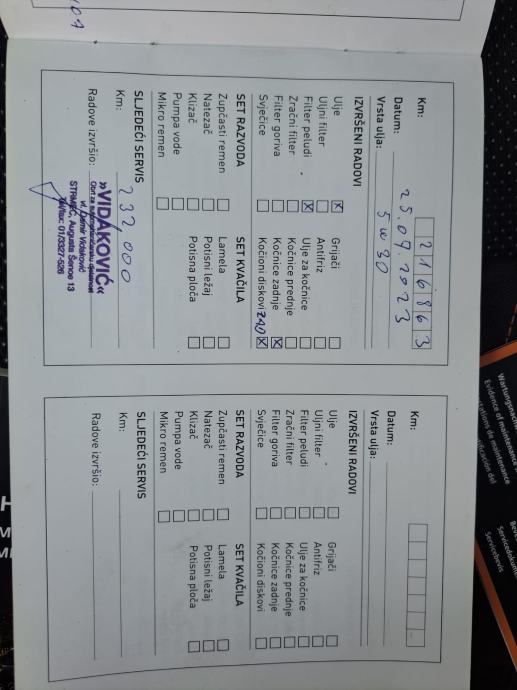 Km: 216863
Datum: 25.09.2023
Vrsta ulja: 5w30
IZVRŠENI RADOVI
Ulje ☒ Grijači ☐
Uljni filter ☐ Antifriz ☐
Filter peludi ☒ Ulje za kočnice ☐
Zračni filter ☐ Kočnice prednje ☐
Filter goriva ☐ Kočnice zadnje ☒
Svječice ☐ Kočioni diskovi ☒
SET RAZVODA SET KVAČILA
Zupčasti remen ☐ Lamela ☐
Natezač ☐ Potisni ležaj ☐
Klizač ☐ Potisna ploča ☐
Pumpa vode ☐
Mikro remen ☐
SLJEDEĆI SERVIS
Km: 232 000
Radove izvršio:
»VIDAKOVIĆ«
vl. Damir Vidaković
STRMEC, Augusta Šenoe 13
Tel/fax: 01/3327-526
Km:
Datum:
Vrsta ulja:
IZVRŠENI RADOVI
Ulje ☐ Grijači ☐
Uljni filter ☐ Antifriz ☐
Filter peludi ☐ Ulje za kočnice ☐
Zračni filter ☐ Kočnice prednje ☐
Filter goriva ☐ Kočnice zadnje ☐
Svječice ☐ Kočioni diskovi ☐
SET RAZVODA SET KVAČILA
Zupčasti remen ☐ Lamela ☐
Natezač ☐ Potisni ležaj ☐
Klizač ☐ Potisna ploča ☐
Pumpa vode ☐
Mikro remen ☐
SLJEDEĆI SERVIS
Km:
Radove izvršio:
Wartungsnach
Evidence of maintenance
stations de maintenance
Servicedokum
Servicebevis